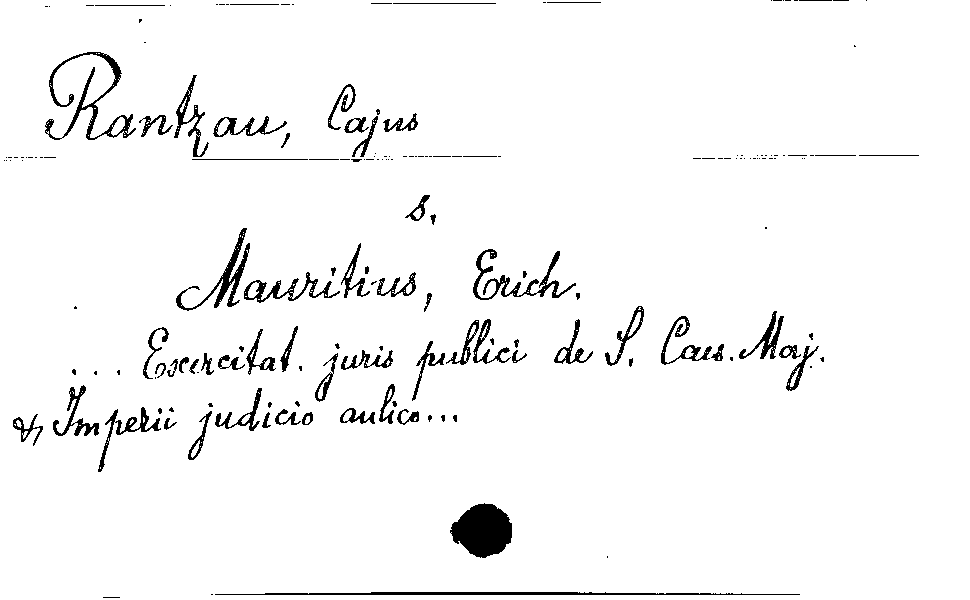 Rantzau, Cajus
s.
Mauritius, Erich.
... Exercitat. juris publici de S. Caes. Maj.
& Imperii judicio aulico...